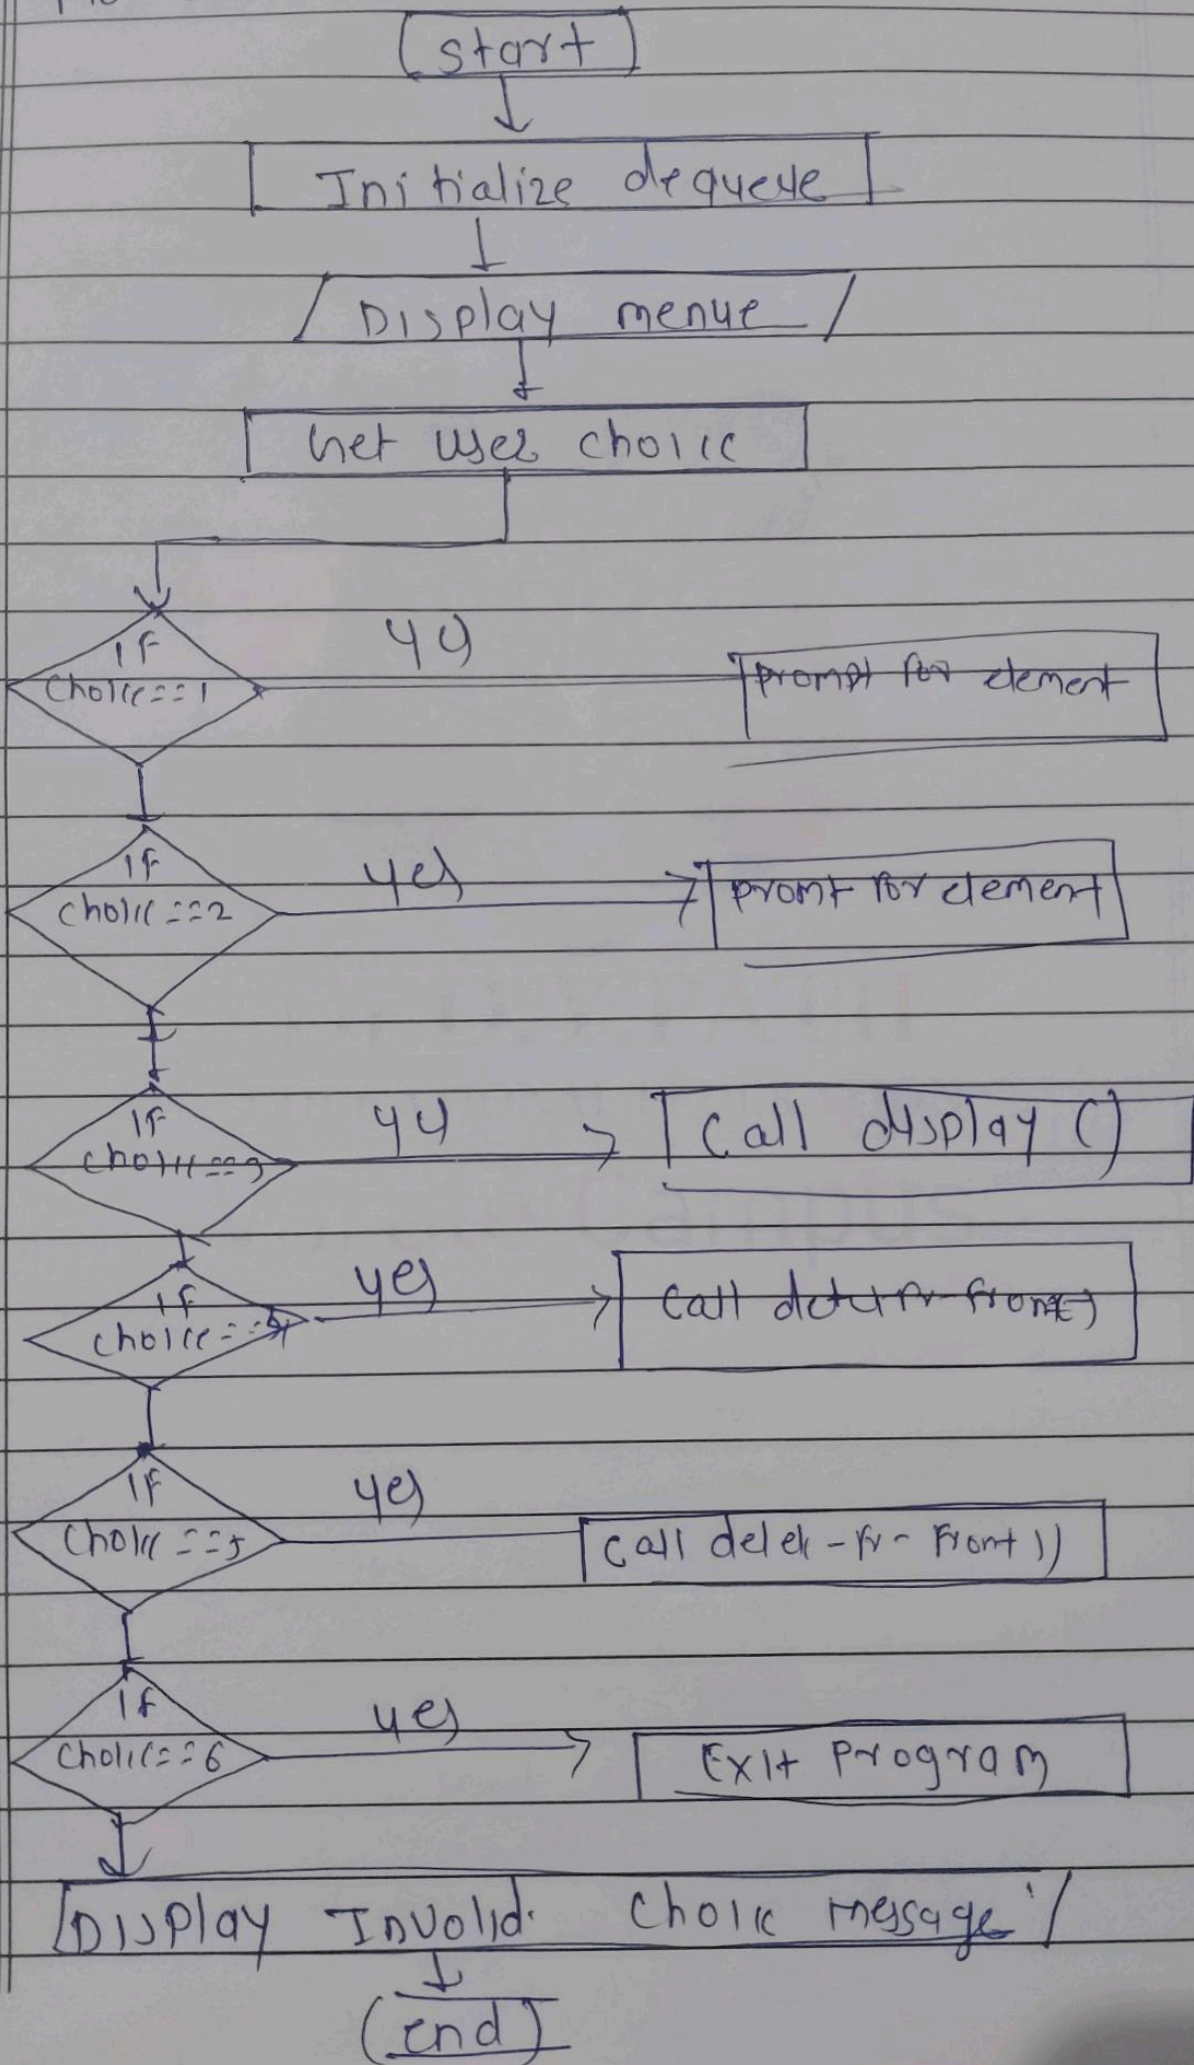 start
Initialize dequeue
Display menue
Get user choice
if
yes
choice==1
prompt for element
if
yes
choice==2
promt for element
if
yes
choice==3
call display ()
if
yes
choice==4
call
if
yes
choice==5
call delete-fr-front ()
if
yes
choice==6
Exit program
Display Invalid choice message
end